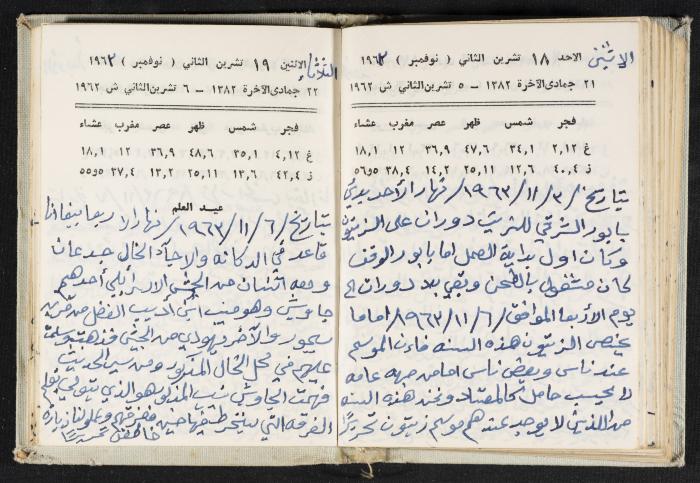 الاثنين
الاحد ١٨ تشرين الثاني ( نوفمبر ) ١٩٦٣
٢١ جمادى الآخرة ١٣٨٢ – ٥ تشرين الثاني ش ١٩٦٢
فجر شمس ظهر عصر مغرب عشاء
غ ٢,١٢ ٣٤,١ ٤٧,٦ ٣٦,٩ ١٢ ١٨,١
ز ٤٠,٤ ١٢,٦ ٢٥,١١ ١٤,٢ ٣٨,٤ ٥٥و٥
بتاريخ /٣/ ١١/ ١٩٦٣/ نهار الأحد
بابور الشرقي للزيت دوران على الزيتون
وكان اول بداية العمل اما بابور الوقف
كان مشغول بالطحن وبقي بلا دوران الى
يوم الأربعا الموافق /٦/ ١١/ ١٩٦٣/ اما ما
يختص الزيتون هذه السنه فانه الموسم
عند ناس وبعض ناس اما من جهه عامه
لا يحسب حامل كالمعتاد ونحن هذه السنه
من الذين لا يوجد عندهم موسم زيتون تحريرًا
الثلاثاء
الاثنين ١٩ تشرين الثاني ( نوفمبر ) ١٩٦٣
٢٢ جمادى الآخرة ١٣٨٢ – ٦ تشرين الثاني ش ١٩٦٢
فجر شمس ظهر عصر مغرب عشاء
غ ٤,١٢ ٣٥,١ ٤٨,٦ ٣٦,٩ ١٢ ١٨,١
ز ٤٢,٤ ١٣,٦ ٢٥,١١ ١٣,٢ ٣٧,٤ ٥٥و٥
عيد العلم
بتاريخ /٦/ ١١/ ١٩٦٣/ نهار الاربعا بينما انا
قاعد في الدكانه والا جاء الخال جدعان
ومعه اثنان من الجيش الاسرائيلي أحدهم
جاويش وهو منيب ابن أديب الفضل من قرية
والآخر يهودي من الجيش فذهبت وسلمت
عليهم في محل الخال المذكور ومن سير الحديث
فهمت الجاويش منيب المذكور هو الذي يتولى
الفرقه التي
تحريرًا